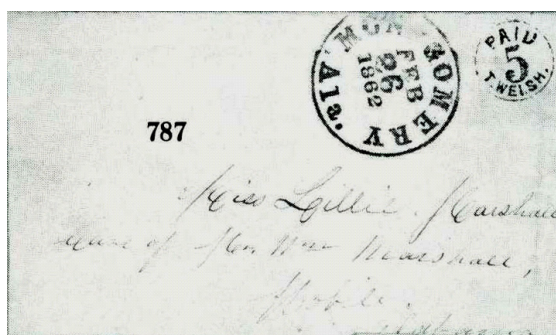 MONTGOMERY Ala.
FEB
26
1862
PAID
5
T. WELSH.
787
Miss Lillie Marshall
care of Wm Marshall,
Mobile